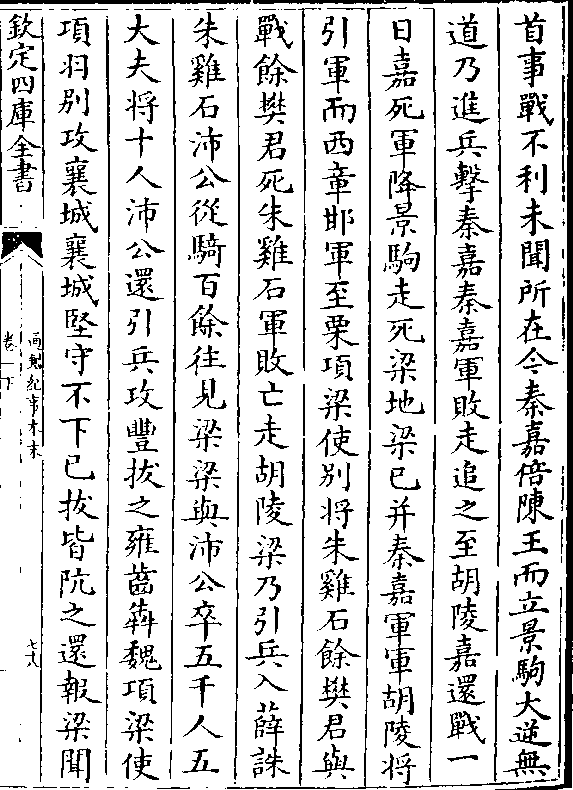 首事戰不利未聞所在今秦嘉倍陳王而立景駒大逆無
道乃進兵擊秦嘉秦嘉軍敗走追之至胡陵嘉還戰一
日嘉死軍降景駒走死梁地梁已并秦嘉軍軍胡陵將
引軍而西章邯軍至栗項梁使別將朱雞石餘樊君與
戰餘樊君死朱雞石軍敗亡走胡陵梁乃引兵入薛誅
朱雞石沛公從騎百餘往見梁梁與沛公卒五千人五
大夫將十人沛公還引兵攻豐拔之雍齒犇魏項梁使
項羽別攻襄城襄城堅守不下已拔皆阬之還報梁聞
欽定四庫全書
紀事本末
卷一下